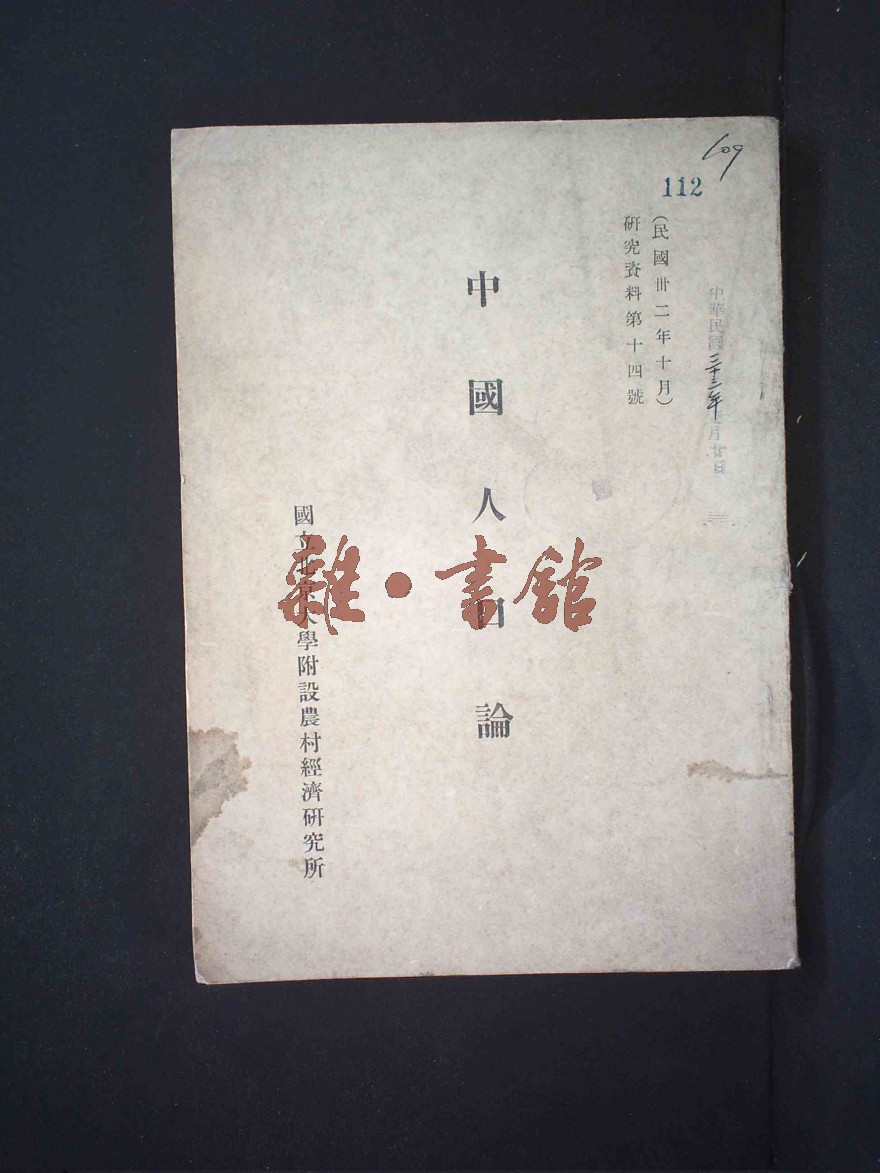 109
112
中華民國三十三年 月廿日
(民國卅二年十月)
研究資料第十四號
中國人口論
國立北京大學附設農村經濟研究所
雜·書館